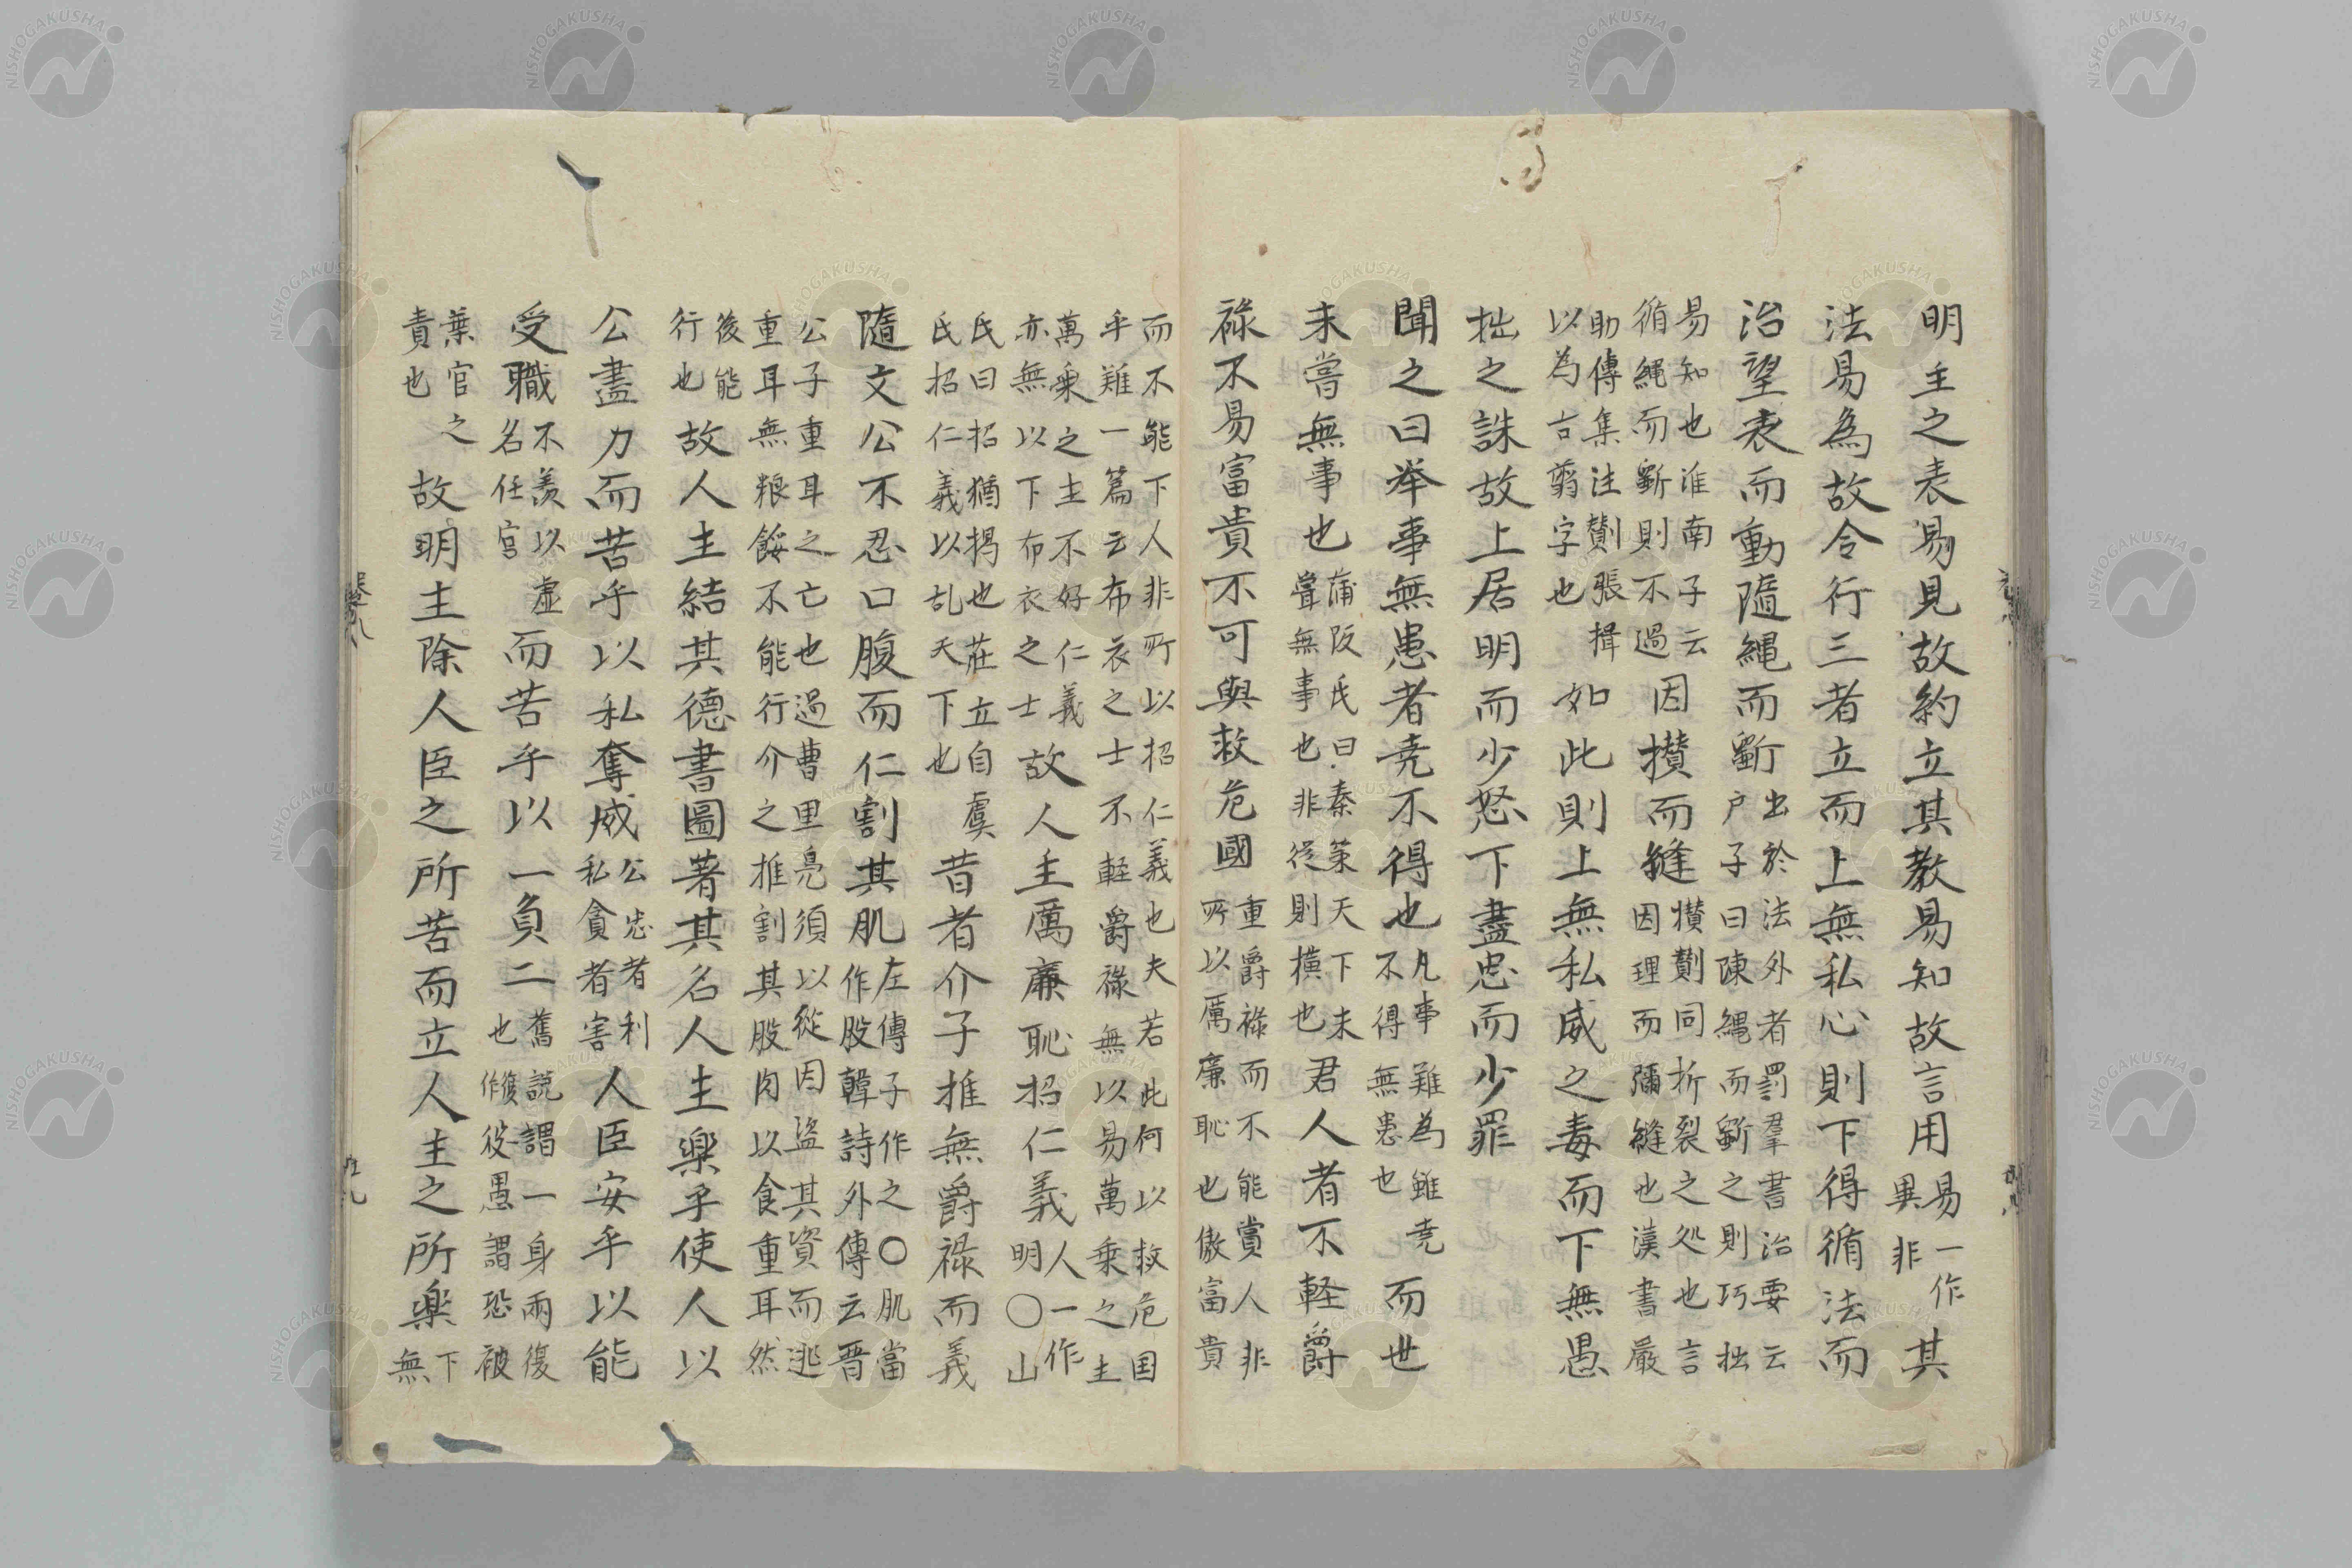 明主之表易見故約立其教易知故言用易一作異非其
法易為故令行三者立而上無私心則下得循法而
治望表而動隨繩而斷出於法外者罰羣書治要云戶子曰陳繩而斷之則巧拙
易知也淮南子云循繩而斷則不過因攅而縫攅劗同折裂之処也言因理而彌縫也漢書嚴
助傳集注劗張揖以為古翦字也如此則上無私威之毒而下無愚
拙之誅故上居明而少怒下盡忠而少罪
聞之曰举事無患者尭不得也凡事難為雖尭不得無患也而世
未嘗無事也蒲阪氏曰秦策天下未嘗無事也非從則横也君人者不軽爵
禄不易富貴不可與救危國重爵禄而不能賞人非所以厲廉恥也傲富貴
而不能下人非所以招仁義也夫若此何以救危国乎難一篇云布衣之士不軽爵禄無以易萬乗之主
萬乗之主不好仁義亦無以下布衣之士故人主厲廉恥招仁義人一作明〇山
氏曰招猶掲也荘立自虞氏招仁義以乱天下也昔者介子推無爵禄而義
隨文公不忍口腹而仁割其肌左傳子作之〇肌當作股韓詩外傳云晋
公子重耳之亡也過曹里鳧須以從因盜其資而逃重耳無粮餒不能行介之推割其股肉以食重耳然
後能行也故人主結其德書圖著其名人主楽乎使人以
公盡力而苦乎以私奪威公忠者利私貪者害人臣安乎以能
受職不羨以虚名任官而苦乎以一負二舊説謂一身兩復也復作役愚謂恐被
葉官之責也故明主除人臣之所苦而立人主之所楽下無